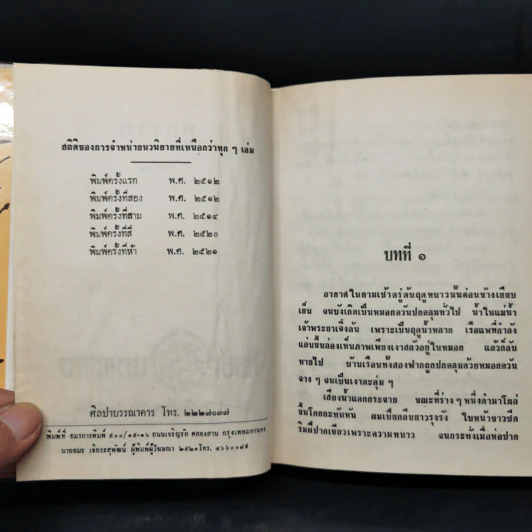 สถิติของการจำหน่ายนวนิยายที่เหนือกว่าทุก ๆ เล่ม
พิมพ์ครั้งแรก พ.ศ. ๒๕๑๒
พิมพ์ครั้งที่สอง พ.ศ. ๒๕๑๒
พิมพ์ครั้งที่สาม พ.ศ. ๒๕๑๔
พิมพ์ครั้งที่สี่ พ.ศ. ๒๕๒๐
พิมพ์ครั้งที่ห้า พ.ศ. ๒๕๒๑
ศิลปาบรรณาคาร โทร. ๒๒๒๗๐๓๗
พิมพ์ที่ อมรการพิมพ์ ๕๐๐/๑๕-๑๖ ถนนเจริญรัถ คลองสาน กรุงเทพมหานคร
นายอมร เจียระสุพัฒน์ ผู้พิมพ์ผู้โฆษณา ๒๕๒๑ โทร.
บทที่ ๑
อากาศในยามเช้าตรู่ต้นฤดูหนาวนั้นค่อนข้างเยียบ
เย็น จนบังเกิดเป็นหมอกควันปกคลุมทั่วไป น้ำในแม่น้ำ
เจ้าพระยาเจิ่งล้น เพราะเป็นฤดูน้ำหลาก เรือแพที่กำลัง
แล่นขึ้นล่องเห็นภาพเพียงเงาสลัวอยู่ในหมอก แล้วก็ลับ
หายไป บ้านเรือนทั้งสองฟากถูกปกคลุมด้วยหมอกควัน
จาง ๆ จนเป็นเงาตะคุ่ม ๆ
เสียงน้ำแตกกระจาย ขณะที่ร่าง ๆ หนึ่งดำมาโผล่
ขึ้นโดยกะทันหัน ผมเปียกถึงยาวรุงรัง ใบหน้าขาวซีด
ริมฝีปากเขียวเพราะความหนาว จนกระทั่งเมื่อห่อปาก